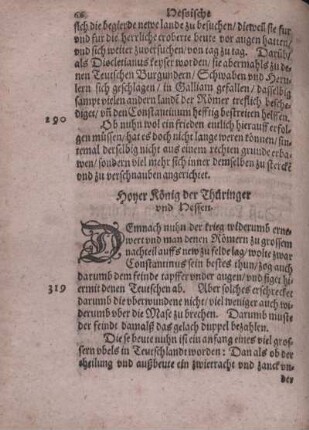 66 Hessische
sich die begierde newe lande zu besuchen / dieweil sie für
und für die herrliche eroberte beute vor augen hatten /
und sich weiter zuversuchen / von tag zu tag. Darüb /
als Diocletianus keyser worden / sie abermahls zu de-
nen Teutschen Burgundern / Schwaben und Heru-
lern sich geschlagen / in Galliam gefallen / dasselbig
sampt vielen andern landē der Römer treflich besche-
diget / uñ den Constantinum hefftig bestreiten helffen.
290 Ob nuhn wol ein frieden entlich hierauff erfol-
gen müssen / hat es doch nicht lange weren können / sin-
temal derselbig nicht aus einem rechten grunde erba-
wen / sondern viel mehr sich inner demselben zu stercken
und zu verschnauben angerichtet.
Hoyer König der Thüringer
und Hessen.
DEmnach nuhn der krieg widerumb erne-
wert und man denen Römern zu grossem
nachteil auffs new zu felde lag / wolte zwar
Constantinus sein bestes thun / zog auch
darumb dem feinde tapffer under augen / und siget hi-
319 ermit denen Teutschen ab. Aber solches erschrecket
darumb die uberwundene nicht / viel weniger auch wi-
derumb uber die Mase zu brechen. Darumb muste
der feindt damalß das gelach duppel bezahlen.
Diese beute nuhn ist ein anfang eines viel gros-
sern ubels in Teutschlandt worden: Dan als ob der
theilung und außbeute ein zwietracht und zanck un-
der